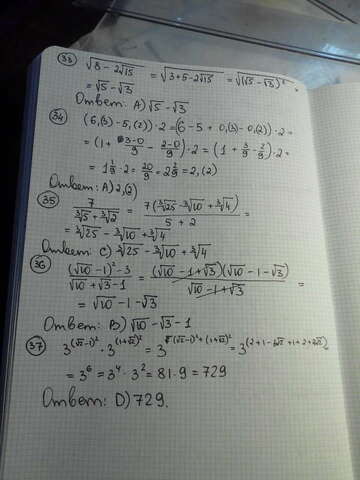 33 √8 - 2√15 = √3+5-2√15 = √(√5-√3)² =
= √5 - √3
Ответ: A) √5 - √3
34
(6,(3) - 5,(2)) · 2 = (6 - 5 + 0,(3) - 0,(2)) · 2 =
= (1 + 3-0/9 - 2-0/9) · 2 = (1 + 3/9 - 2/9) · 2 =
= 1 1/9 · 2 = 20/9 = 2 2/9 = 2,(2)
Ответ: A) 2,(2)
35 7/(∛5 + ∛2) = 7(∛25 - ∛10 + ∛4)/(5 + 2) =
= ∛25 - ∛10 + ∛4
Ответ: C) ∛25 - ∛10 + ∛4
36 ((√10 - 1)² - 3)/(√10 + √3 - 1) = (√10 - 1 + √3)(√10 - 1 - √3)/(√10 - 1 + √3) =
= √10 - 1 - √3
Ответ: B) √10 - √3 - 1
37 3^(√2-1)² · 3^(1+√2)² = 3^((√2-1)² + (1+√2)²) = 3^(2+1-2√2+1+2+2√2) =
= 3⁶ = 3⁴ · 3² = 81 · 9 = 729
Ответ: D) 729.